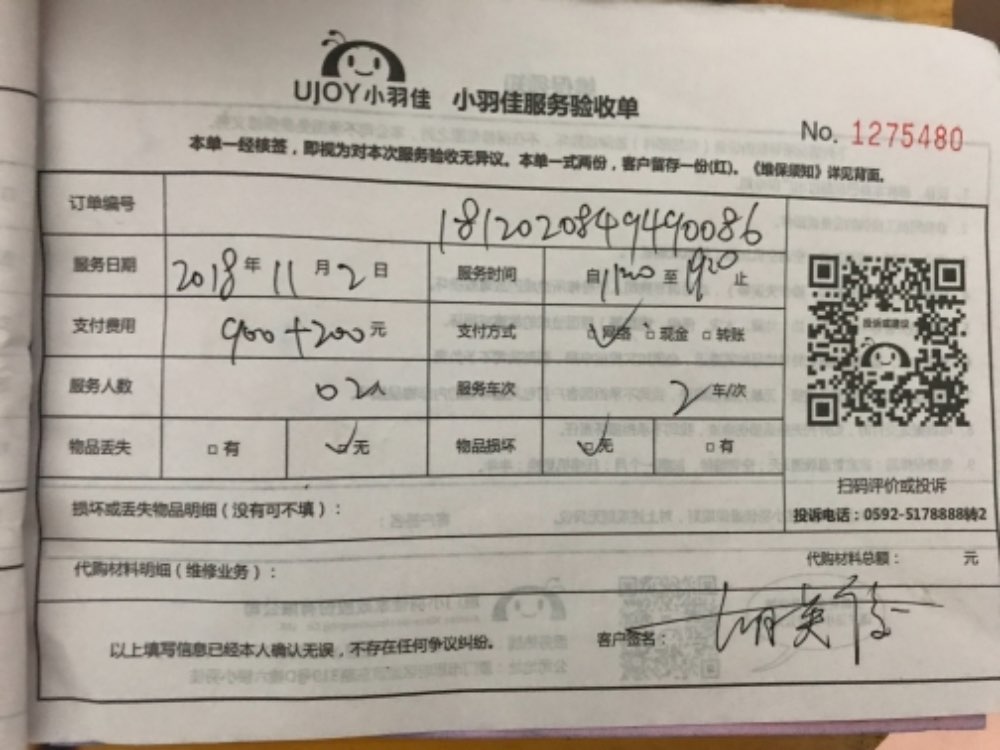 UJOY小羽佳 小羽佳服务验收单
No. 1275480
本单一经核签，即视为对本次服务验收无异议。本单一式两份，客户留存一份(红)。《维保须知》详见背面。
订单编号 181202084949490086
服务日期 2018年11月2日 服务时间 自1120至1920止
支付费用 900+200元 支付方式 网络 现金 转账
投诉或建议
服务人数 02 服务车次 2车/次
物品丢失 有 无 物品损坏 无 有
扫码评价或投诉
损坏或丢失物品明细（没有可不填）：
投诉电话：0592-5178888转2
代购材料明细（维修业务）： 代购材料总额： 元
以上填写信息已经本人确认无误，不存在任何争议纠纷。 客户签名：